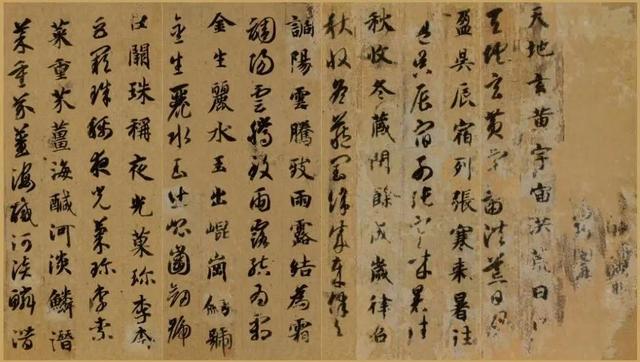 天地玄黃宇宙洪荒日
天地玄黃宇宙洪荒日月
盈昃辰宿列張寒来暑往
昃辰宿列張寒来暑往
秋收冬藏閏餘成歲律召
秋收冬藏閏餘成歲律召
調陽雲騰致雨露結為霜
調陽雲騰致雨露結為霜
金生麗水玉出崐崗劍號
金生麗水玉出崐崗劍號
巨闕珠稱夜光菓珍李柰
巨闕珠稱夜光菓珍李柰
菜重芥薑海醎河淡鱗潛
菜重芥薑海醎河淡鱗潛